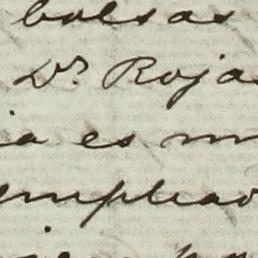 bolsas
Dr. Roja
ia es m
emplead